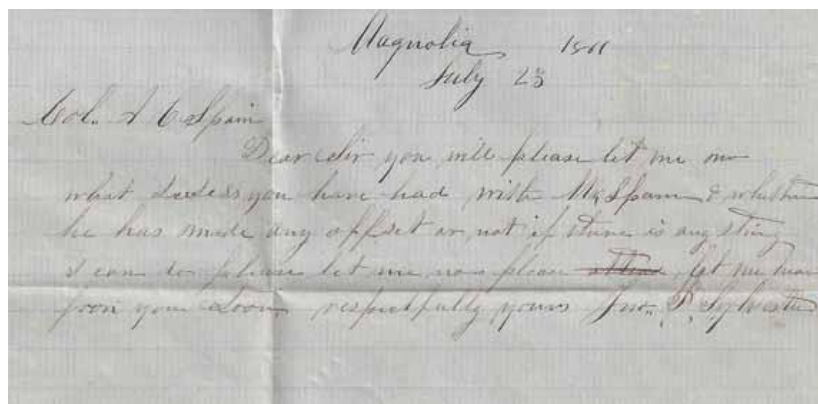 Magnolia 1861
July 23
Col. A C Spain
Dear Sir you will please let me no
what success you have had with Mr Spain & whether
he has made any offset or not if there is any thing
I can do please let me no please let me hear
from you Soon respectfully yours Jno. P. Sylvester